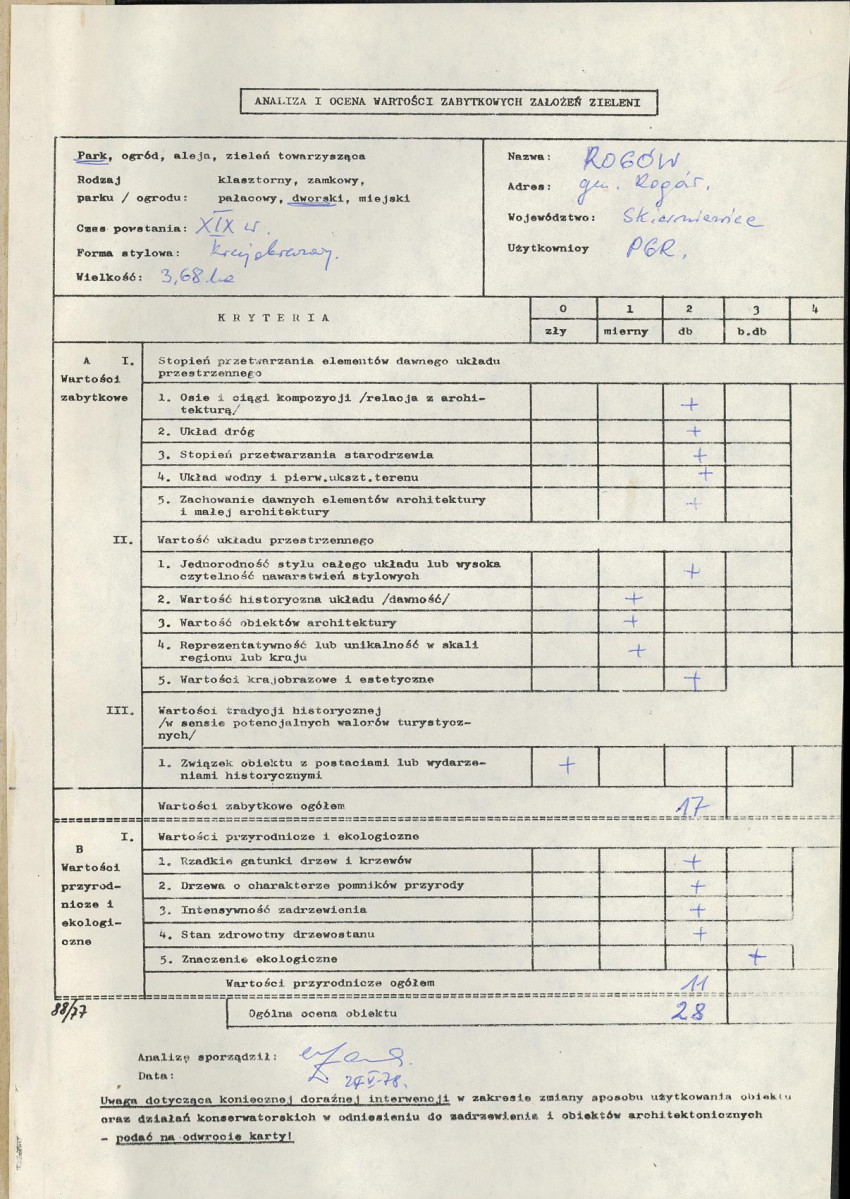 ANALIZA I OCENA WARTOŚCI ZABYTKOWYCH ZAŁOŻEŃ ZIELENI
Park, ogród, aleja, zieleń towarzysząca
Rodzaj klasztorny, zamkowy,
parku / ogrodu: pałacowy, dworski, miejski
Czas powstania: XIX w.
Forma stylowa: krajobrazowy.
Wielkość: 3,68 ha
Nazwa: ROGÓW
Adres: gm. Rogów.
Województwo: Skierniewice
Użytkownicy PGR.
KRYTERIA
0 1 2 3 4
zły mierny db b.db
A I. Stopień przetwarzania elementów dawnego układu
Wartości przestrzennego
zabytkowe
1. Osie i ciągi kompozycji /relacja z archi-
tekturą/ +
2. Układ dróg +
3. Stopień przetwarzania starodrzewia +
4. Układ wodny i pierw.ukszt.terenu +
5. Zachowanie dawnych elementów architektury
i małej architektury +
II. Wartość układu przestrzennego
1. Jednorodność stylu całego układu lub wysoka
czytelność nawarstwień stylowych +
2. Wartość historyczna układu /dawność/ +
3. Wartość obiektów architektury +
4. Reprezentatywność lub unikalność w skali
regionu lub kraju +
5. Wartości krajobrazowe i estetyczne +
III. Wartości tradycji historycznej
/w sensie potencjalnych walorów turystycz-
nych/
1. Związek obiektu z postaciami lub wydarze-
niami historycznymi +
Wartości zabytkowe ogółem 17
I. Wartości przyrodnicze i ekologiczne
B
Wartości
przyrod-
nicze i
ekologi-
czne
1. Rzadkie gatunki drzew i krzewów +
2. Drzewa o charakterze pomników przyrody +
3. Intensywność zadrzewienia +
4. Stan zdrowotny drzewostanu +
5. Znaczenie ekologiczne +
Wartości przyrodnicze ogółem 11
88/77
Ogólna ocena obiektu 28
Analizę sporządził:
Data: 24.V-78.
Uwaga dotycząca koniecznej doraźnej interwencji w zakresie zmiany sposobu użytkowania obiektu
oraz działań konserwatorskich w odniesieniu do zadrzewienia i obiektów architektonicznych
- podać na odwrocie karty!